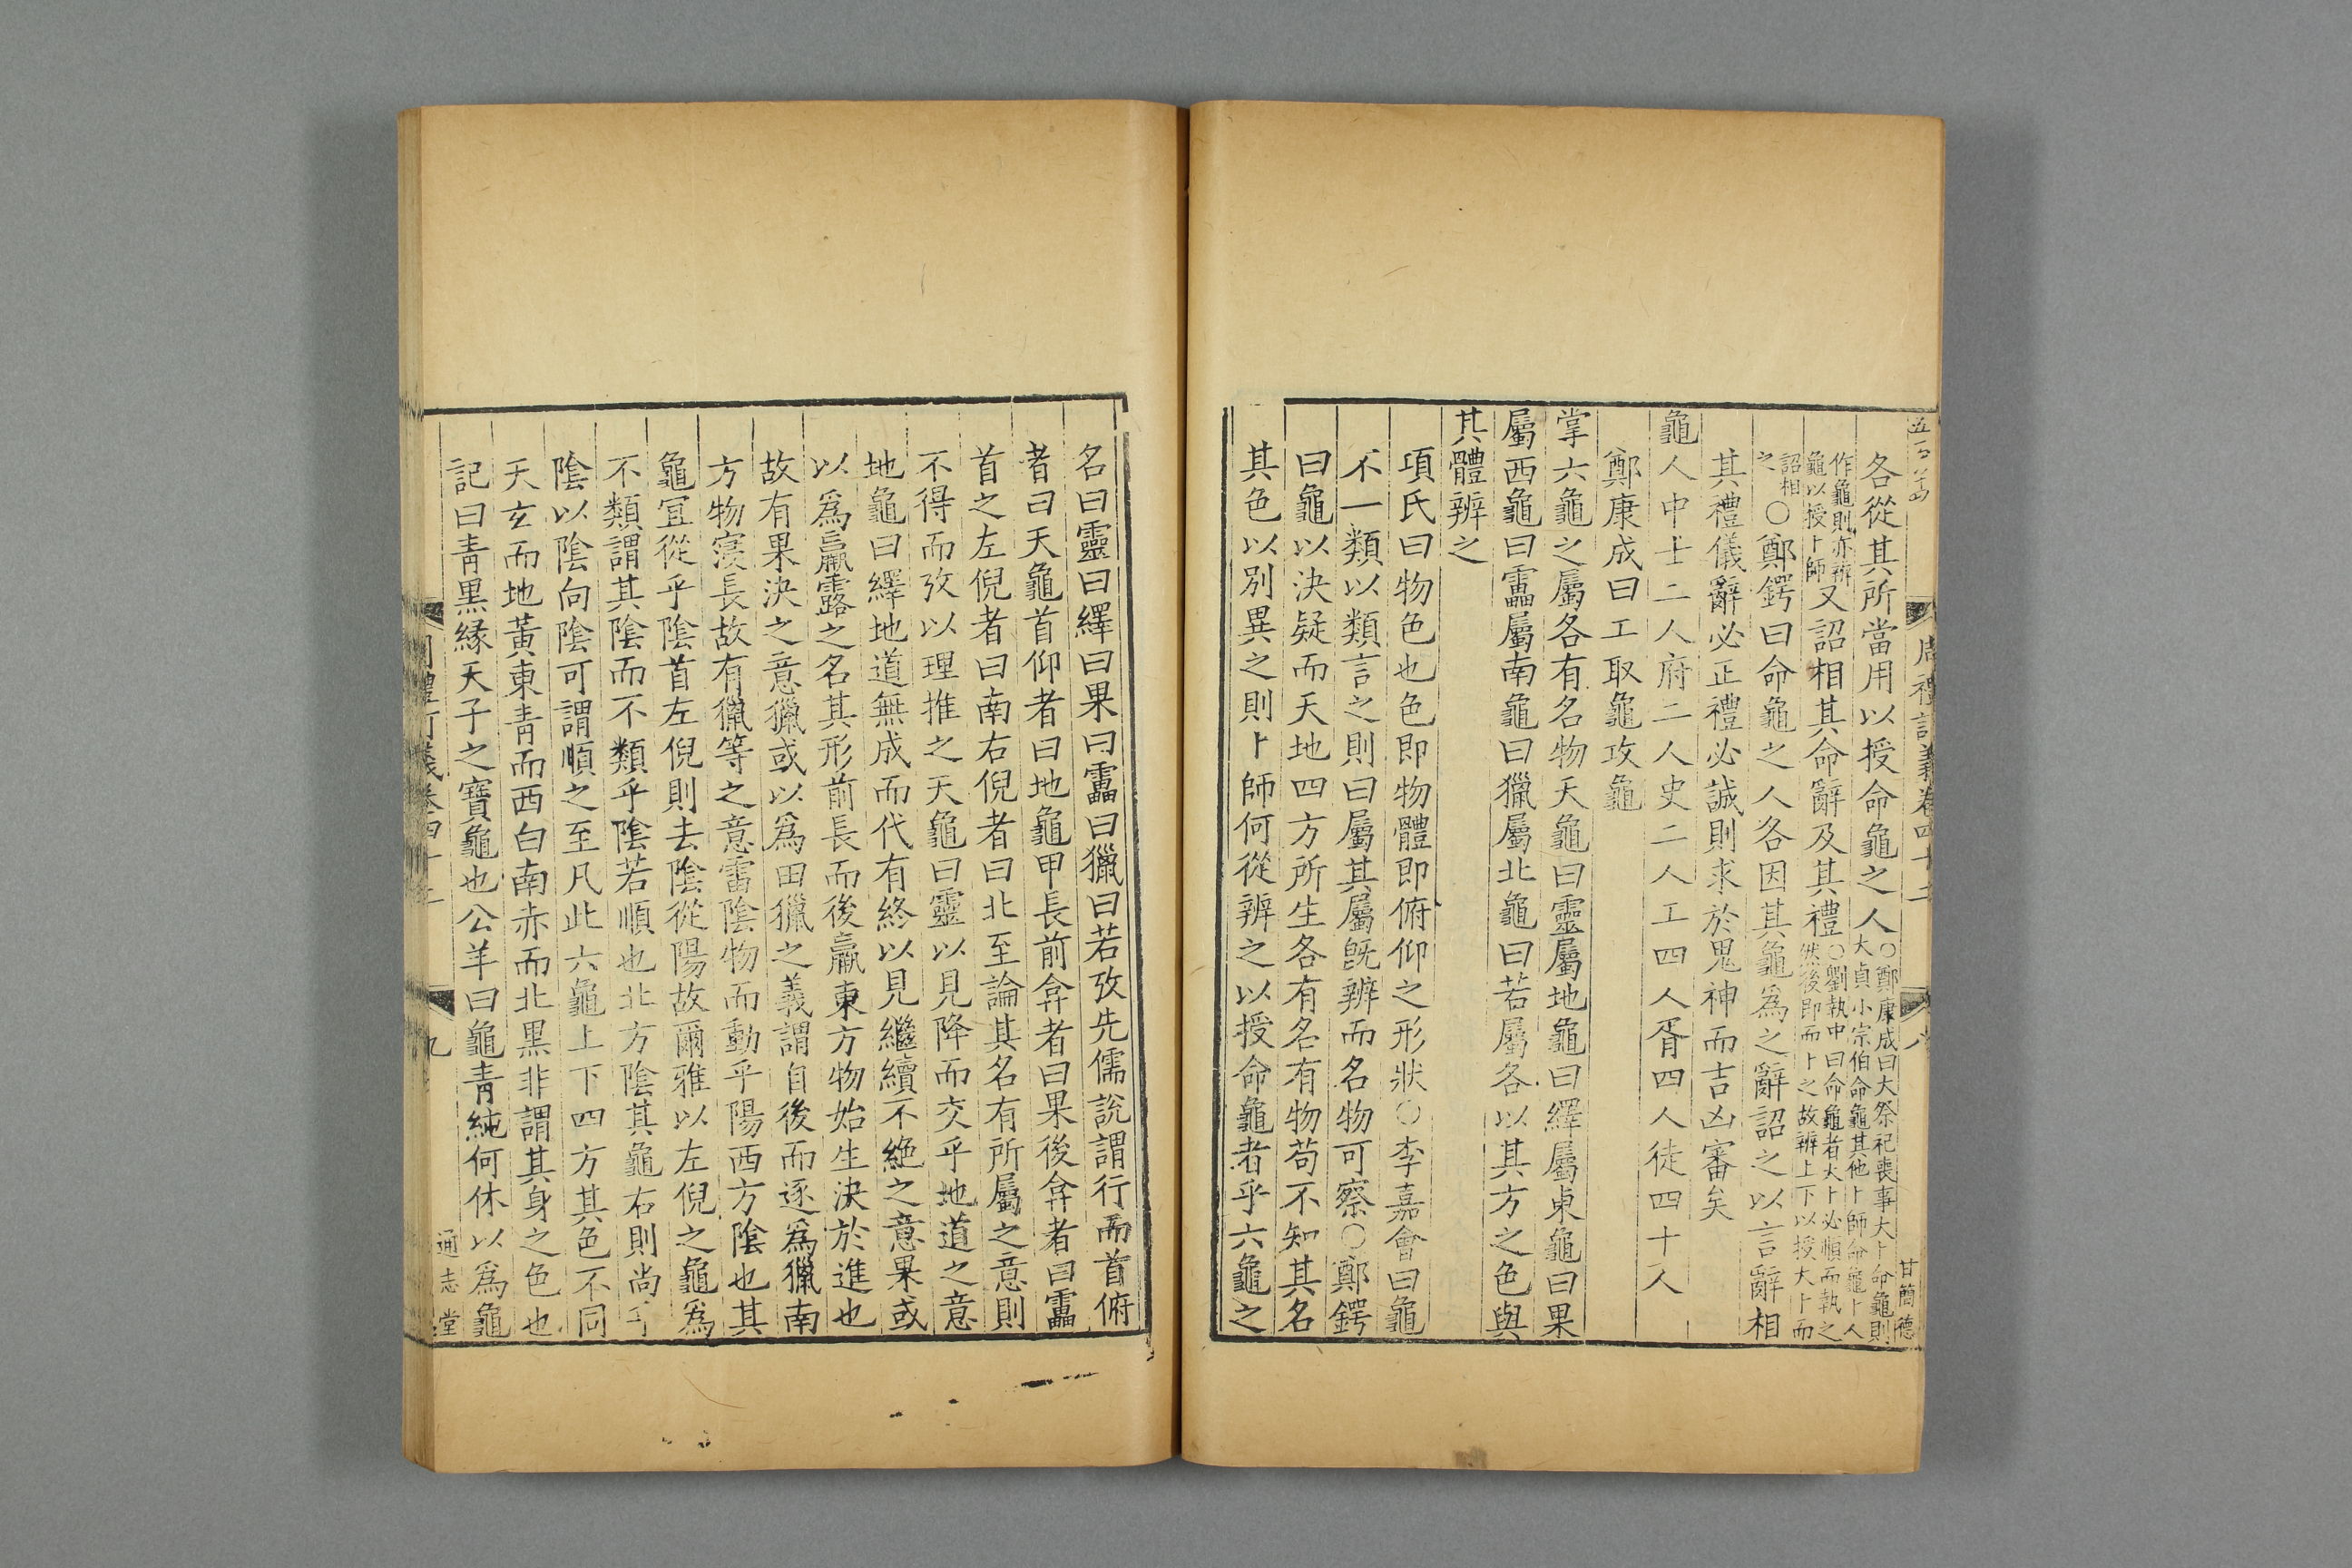 周禮訂義卷四十二
八
甘簡德
各從其所當用以授命龜之人○鄭康成曰大祭祀喪事大卜命龜則大貞小宗伯命龜其他卜師命龜卜人
作龜則亦辨龜以授卜師又詔相其命辭及其禮○劉執中曰命龜者大卜必順而執之然後即而卜之故辨上下以授大卜而
詔相之○鄭鍔曰命龜之人各因其龜爲之辭詔之以言辭相
其禮儀辭必正禮必誠則求於鬼神而吉凶審矣
龜人中士二人府二人史二人工四人胥四人徒四十人
鄭康成曰工取龜攻龜
掌六龜之屬各有名物天龜曰靈屬地龜曰繹屬東龜曰果
屬西龜曰靁屬南龜曰獵屬北龜曰若屬各以其方之色與
其體辨之
項氏曰物色也色即物體即俯仰之形狀○李嘉會曰龜
不一類以類言之則曰屬其屬旣辨而名物可察○鄭鍔
曰龜以決疑而天地四方所生各有名有物苟不知其名
其色以別異之則卜師何從辨之以授命龜者乎六龜之
名曰靈曰繹曰果曰靁曰獵曰若攷先儒說謂行而首俯
者曰天龜首仰者曰地龜甲長前弇者曰果後弇者曰靁
首之左倪者曰南右倪者曰北至論其名有所屬之意則
不得而攷以理推之天龜曰靈以見降而交乎地道之意
地龜曰繹地道無成而代有終以見繼續不絶之意果或
以爲臝露之名其形前長而後臝東方物始生決於進也
故有果決之意獵或以爲田獵之義謂自後而逐爲獵南
方物寖長故有獵等之意雷陰物而動乎陽西方陰也其
龜冝從乎陰首左倪則去陰從陽故爾雅以左倪之龜爲
不類謂其陰而不類乎陰若順也北方陰其龜右則尚乎
陰以陰向陰可謂順之至凡此六龜上下四方其色不同
天玄而地黃東青而西白南赤而北黑非謂其身之色也
記曰青黑緣天子之寶龜也公羊曰龜青純何休以爲龜
九
通志堂